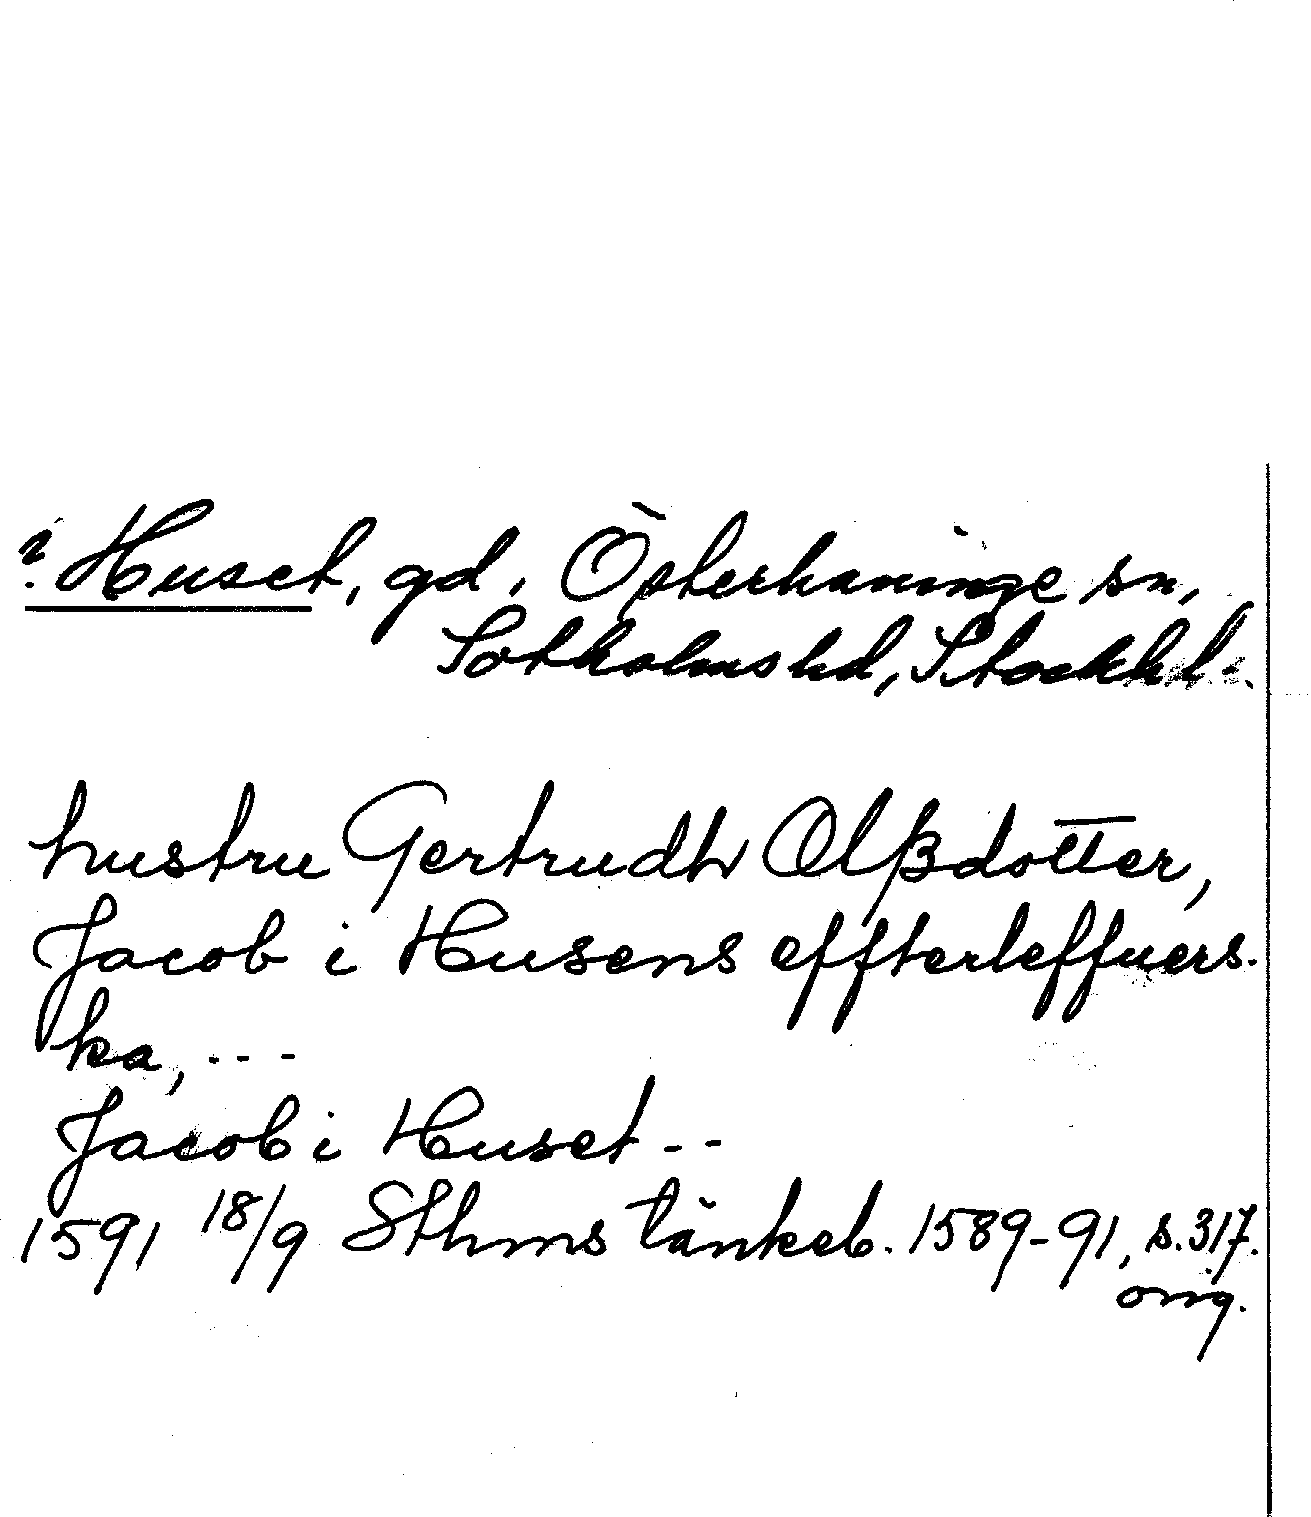 ? Huset, gd, Österhaninge sn,
Sotholms hd, Stockh. l.
hustru Gertrudh Olßdotter,
Jacob i Husens effterleffuers-
ka, ---
Jacob i Huset --
1591 18/9 Sthms tänkeb. 1589-91, s. 317.
orig.